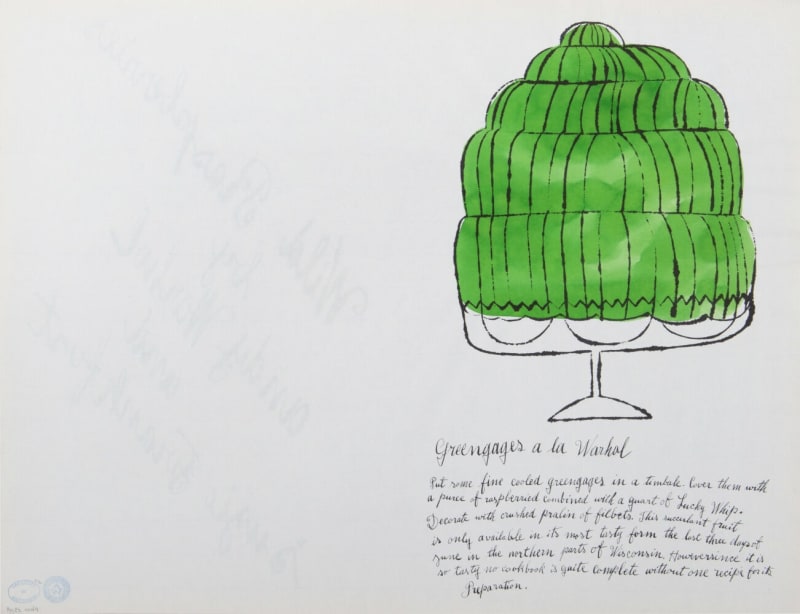 Greengages a la Warhol
Put some fine cooled greengages in a timbale. Cover them with
a puree of raspberried combined with a quart of Lucky Whip.
Decorate with crushed pralin of filberts. This succulent fruit
is only available in its most tasty form the last three days of
june in the northern parts of Wisconsin. However since it is
so tasty no cookbook is quite complete without one recipe for its
Preparation.
Wild Raspberries
by
andy Warhol
and
Suzie Frankfurt